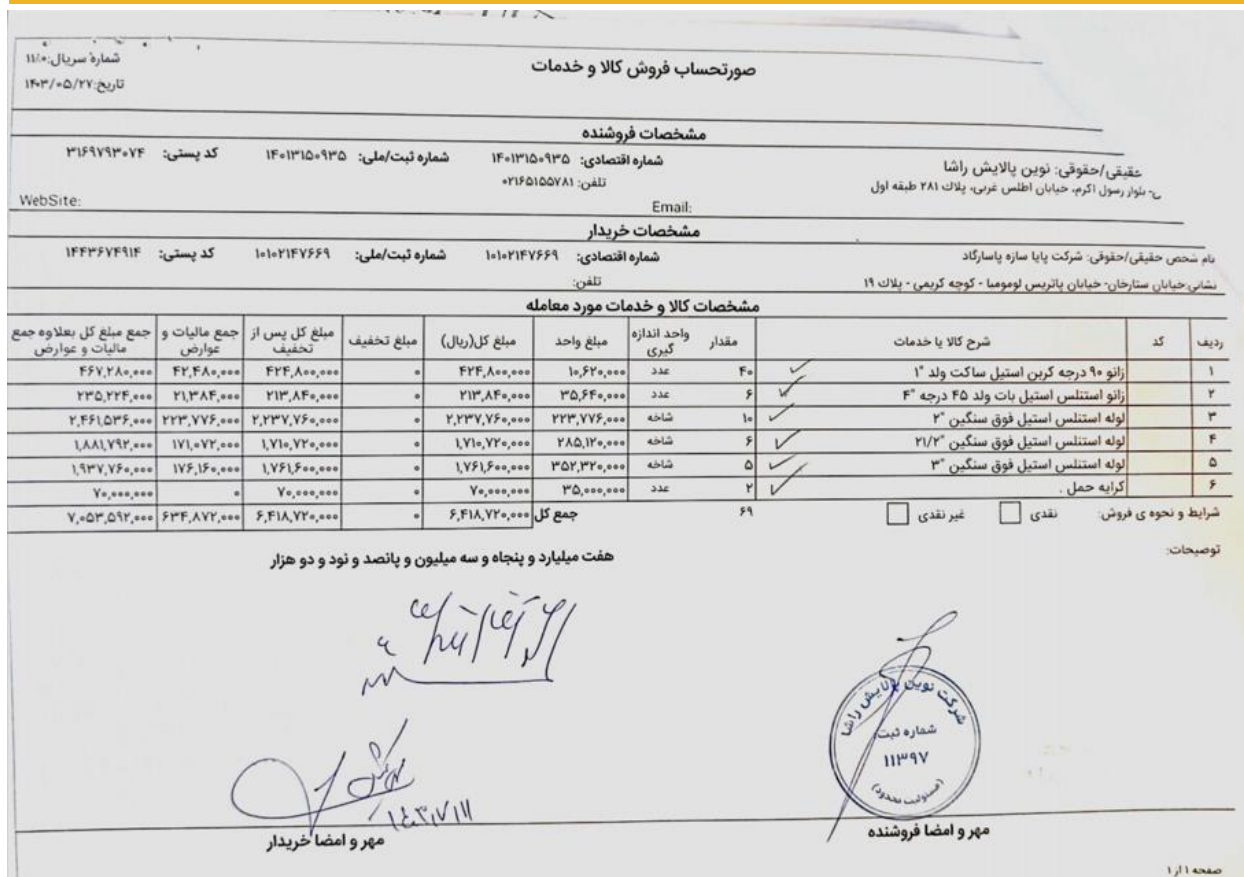 صورتحساب فروش کالا و خدمات
شمارهٔ سریال:
تاریخ:۱۴۰۳/۰۵/۲۷
مشخصات فروشنده
حقیقی/حقوقی: نوین پالایش راشا شماره اقتصادی: ۱۴۰۱۳۱۵۰۹۳۵ شماره ثبت/ملی: ۱۴۰۱۳۱۵۰۹۳۵ کد پستی: ۳۱۶۹۷۹۳۰۷۴
بلوار رسول اکرم، خیابان اطلس غربی، پلاک ۲۸۱ طبقه اول تلفن: ۰۲۱۶۵۱۵۵۷۸۱
Email: WebSite:
مشخصات خریدار
نام شخص حقیقی/حقوقی: شرکت پایا سازه پاسارگاد شماره اقتصادی: ۱۰۱۰۲۱۴۷۶۶۹ شماره ثبت/ملی: ۱۰۱۰۲۱۴۷۶۶۹ کد پستی: ۱۴۴۳۶۷۴۹۱۴
نشانی:خیابان ستارخان- خیابان پاتریس لومومبا - کوچه کریمی - پلاک ۱۹ تلفن:
مشخصات کالا و خدمات مورد معامله
ردیف کد شرح کالا یا خدمات مقدار واحد اندازه گیری مبلغ واحد مبلغ کل(ریال) مبلغ تخفیف مبلغ کل پس از تخفیف جمع مالیات و عوارض جمع مبلغ کل بعلاوه جمع مالیات و عوارض
۱ زانو ۹۰ درجه کربن استیل ساکت ولد "۱ ۴۰ عدد ۱۰,۶۲۰,۰۰۰ ۴۲۴,۸۰۰,۰۰۰ ۰ ۴۲۴,۸۰۰,۰۰۰ ۴۲,۴۸۰,۰۰۰ ۴۶۷,۲۸۰,۰۰۰
۲ زانو استنلس استیل بات ولد ۴۵ درجه "۴ ۶ عدد ۳۵,۶۴۰,۰۰۰ ۲۱۳,۸۴۰,۰۰۰ ۰ ۲۱۳,۸۴۰,۰۰۰ ۲۱,۳۸۴,۰۰۰ ۲۳۵,۲۲۴,۰۰۰
۳ لوله استنلس استیل فوق سنگین "۲ ۱۰ شاخه ۲۲۳,۷۷۶,۰۰۰ ۲,۲۳۷,۷۶۰,۰۰۰ ۰ ۲,۲۳۷,۷۶۰,۰۰۰ ۲۲۳,۷۷۶,۰۰۰ ۲,۴۶۱,۵۳۶,۰۰۰
۴ لوله استنلس استیل فوق سنگین "۲۱/۲ ۶ شاخه ۲۸۵,۱۲۰,۰۰۰ ۱,۷۱۰,۷۲۰,۰۰۰ ۰ ۱,۷۱۰,۷۲۰,۰۰۰ ۱۷۱,۰۷۲,۰۰۰ ۱,۸۸۱,۷۹۲,۰۰۰
۵ لوله استنلس استیل فوق سنگین "۳ ۵ شاخه ۳۵۲,۳۲۰,۰۰۰ ۱,۷۶۱,۶۰۰,۰۰۰ ۰ ۱,۷۶۱,۶۰۰,۰۰۰ ۱۷۶,۱۶۰,۰۰۰ ۱,۹۳۷,۷۶۰,۰۰۰
۶ کرایه حمل . ۲ عدد ۳۵,۰۰۰,۰۰۰ ۷۰,۰۰۰,۰۰۰ ۰ ۷۰,۰۰۰,۰۰۰ ۰ ۷۰,۰۰۰,۰۰۰
شرایط و نحوه ی فروش: نقدی غیر نقدی ۶۹ جمع کل ۶,۴۱۸,۷۲۰,۰۰۰ ۰ ۶,۴۱۸,۷۲۰,۰۰۰ ۶۳۴,۸۷۲,۰۰۰ ۷,۰۵۳,۵۹۲,۰۰۰
توضیحات:
هفت میلیارد و پنجاه و سه میلیون و پانصد و نود و دو هزار
شرکت نوین پالایش راشا
شماره ثبت:
۱۱۳۹۷
(مسئولیت محدود)
مهر و امضا فروشنده
مهر و امضا خریدار
صفحه ۱ از ۱